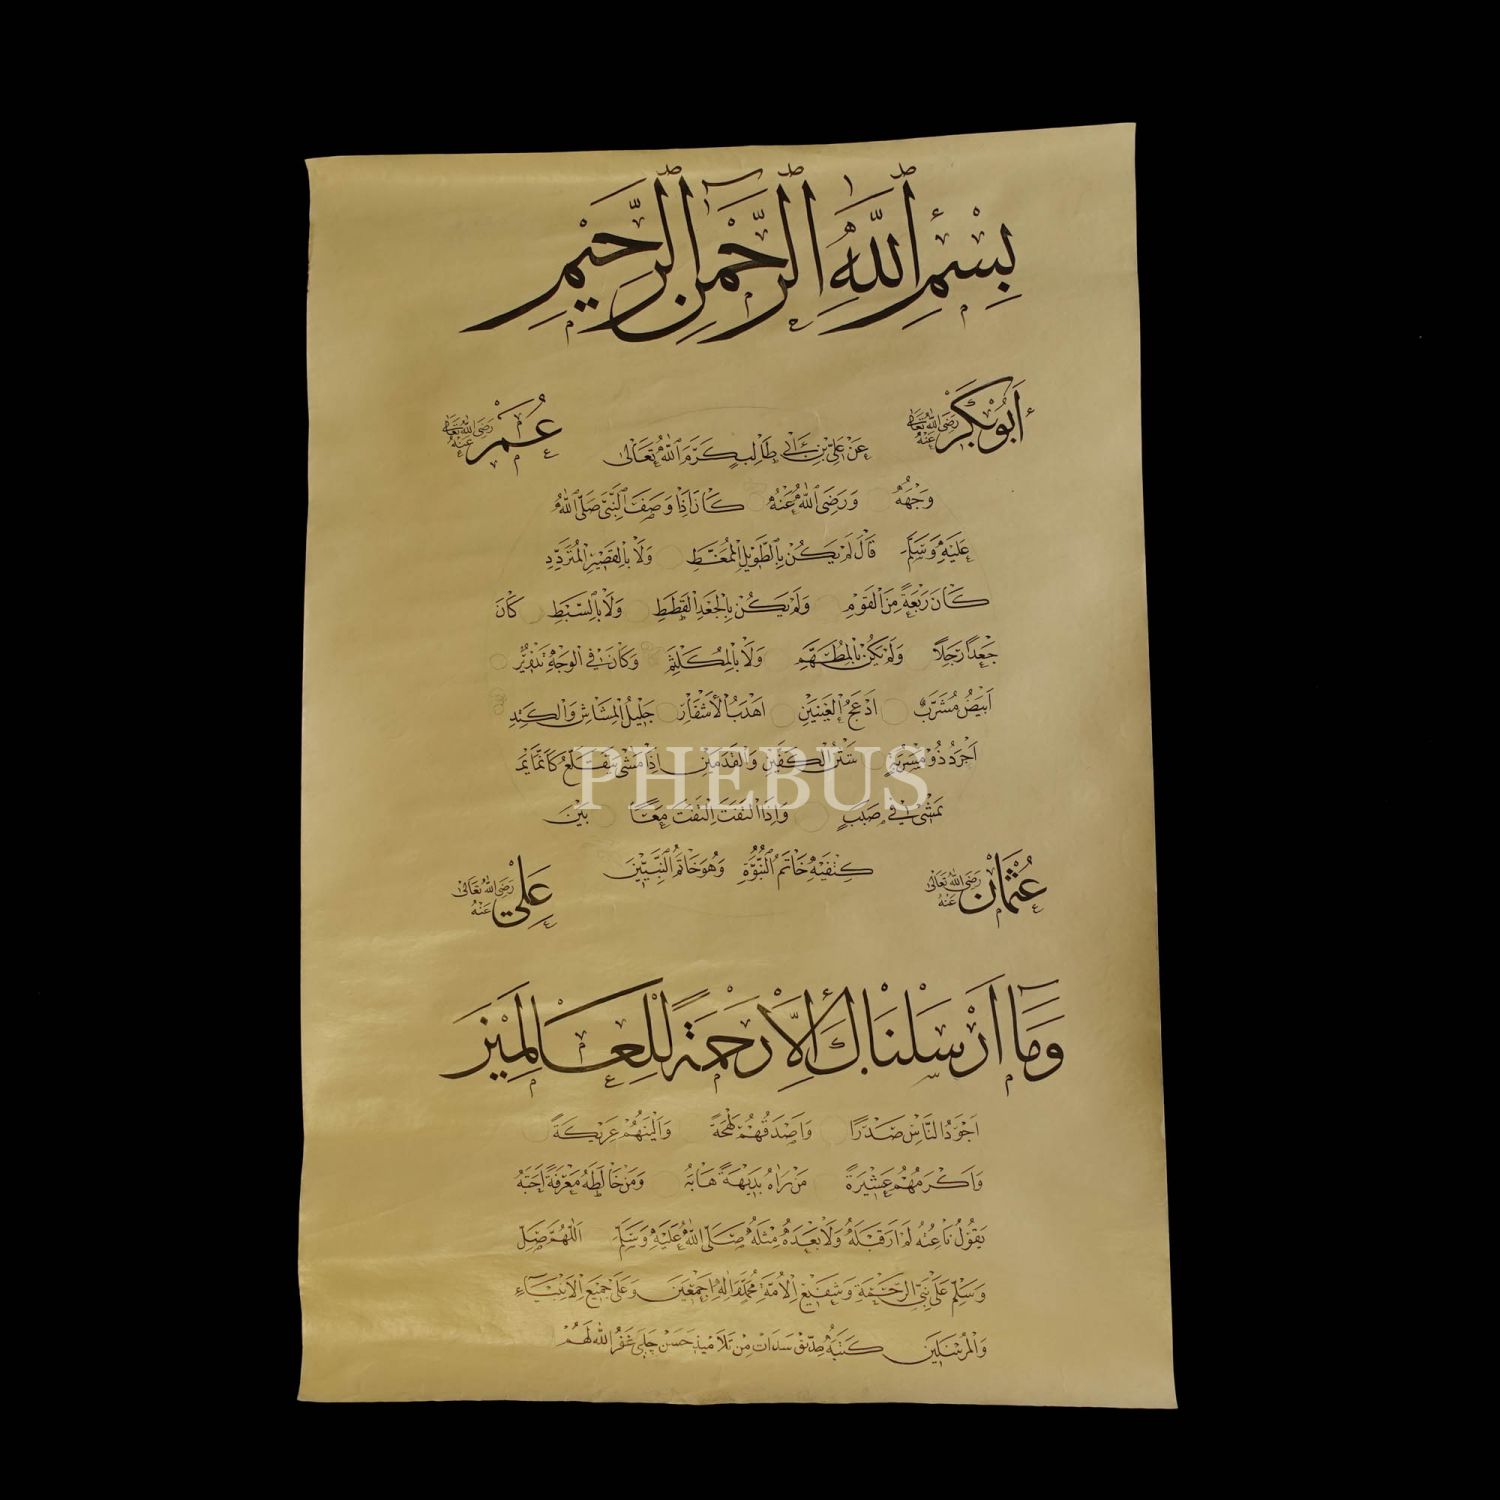 بِسْمِ ٱللَّهِ ٱلرَّحْمَنِ ٱلرَّحِيمِ
أَبُو بَكْرٍ رَضِيَ ٱللَّهُ تَعَالَى عَنْهُ
عُمَرْ رَضِيَ ٱللَّهُ تَعَالَى عَنْهُ
عَنْ عَلِيِّ بْنِ أَبِي طَالِبٍ كَرَّمَ ٱللَّهُ تَعَالَى
وَجْهَهُ وَرَضِيَ ٱللَّهُ عَنْهُ كَانَ إِذَا وَصَفَ ٱلنَّبِيَّ صَلَّى ٱللَّهُ
عَلَيْهِ وَسَلَّمَ قَالَ لَمْ يَكُنْ بِالطَّوِيلِ الْمُمَغَّطِ وَلَا بِالْقَصِيرِ الْمُتَرَدِّدِ
كَانَ رَبْعَةً مِنَ الْقَوْمِ وَلَمْ يَكُنْ بِالْجَعْدِ الْقَطَطِ وَلَا بِالسَّبْطِ كَانَ
جَعْدًا رَجِلًا وَلَمْ يَكُنْ بِالْمُطَهَّمِ وَلَا بِالْمُكَلْثَمِ وَكَانَ فِي الْوَجْهِ تَدْوِيرٌ
أَبْيَضُ مُشْرَبٌ أَدْعَجُ الْعَيْنَيْنِ أَهْدَبُ الْأَشْفَارِ جَلِيلُ الْمُشَاشِ وَالْكَتَدِ
أَجْرَدُ ذُو مَسْرُبَةٍ شَثْنُ الْكَفَّيْنِ وَالْقَدَمَيْنِ إِذَا مَشَى يَتَقَلَّعُ كَأَنَّمَا
يَمْشِي فِي صَبَبٍ وَإِذَا الْتَفَتَ الْتَفَتَ مَعًا بَيْنَ
كَتِفَيْهِ خَاتَمُ النُّبُوَّةِ وَهُوَ خَاتَمُ النَّبِيِّينَ
عُثْمَانْ رَضِيَ ٱللَّهُ تَعَالَى عَنْهُ
عَلِيْ رَضِيَ ٱللَّهُ تَعَالَى عَنْهُ
وَمَا أَرْسَلْنَاكَ إِلَّا رَحْمَةً لِلْعَالَمِينَ
أَجْوَدُ النَّاسِ صَدْرًا وَأَصْدَقُهُمْ لَهْجَةً وَأَلْيَنُهُمْ عَرِيكَةً
وَأَكْرَمُهُمْ عَشِيرَةً مَنْ رَآهُ بَدِيهَةً هَابَهُ وَمَنْ خَالَطَهُ مَعْرِفَةً أَحَبَّهُ
يَقُولُ نَاعِتُهُ لَمْ أَرَ قَبْلَهُ وَلَا بَعْدَهُ مِثْلَهُ صَلَّى ٱللَّهُ عَلَيْهِ وَسَلَّمَ اَللَّهُمَّ صَلِّ
وَسَلِّمْ عَلَى نَبِيِّ الرَّحْمَةِ وَشَفِيعِ الْأُمَّةِ مُحَمَّدٍ وَآلِهِ أَجْمَعِينَ وَعَلَى جَمِيعِ الْأَنْبِيَاءِ
وَالْمُرْسَلِينَ كَتَبَهُ سَدَاتْ مِنْ تَلَامِيذِ حَسَنْ چَلَبِي غَفَرَ اللهُ لَهُمْ
PHEBUS